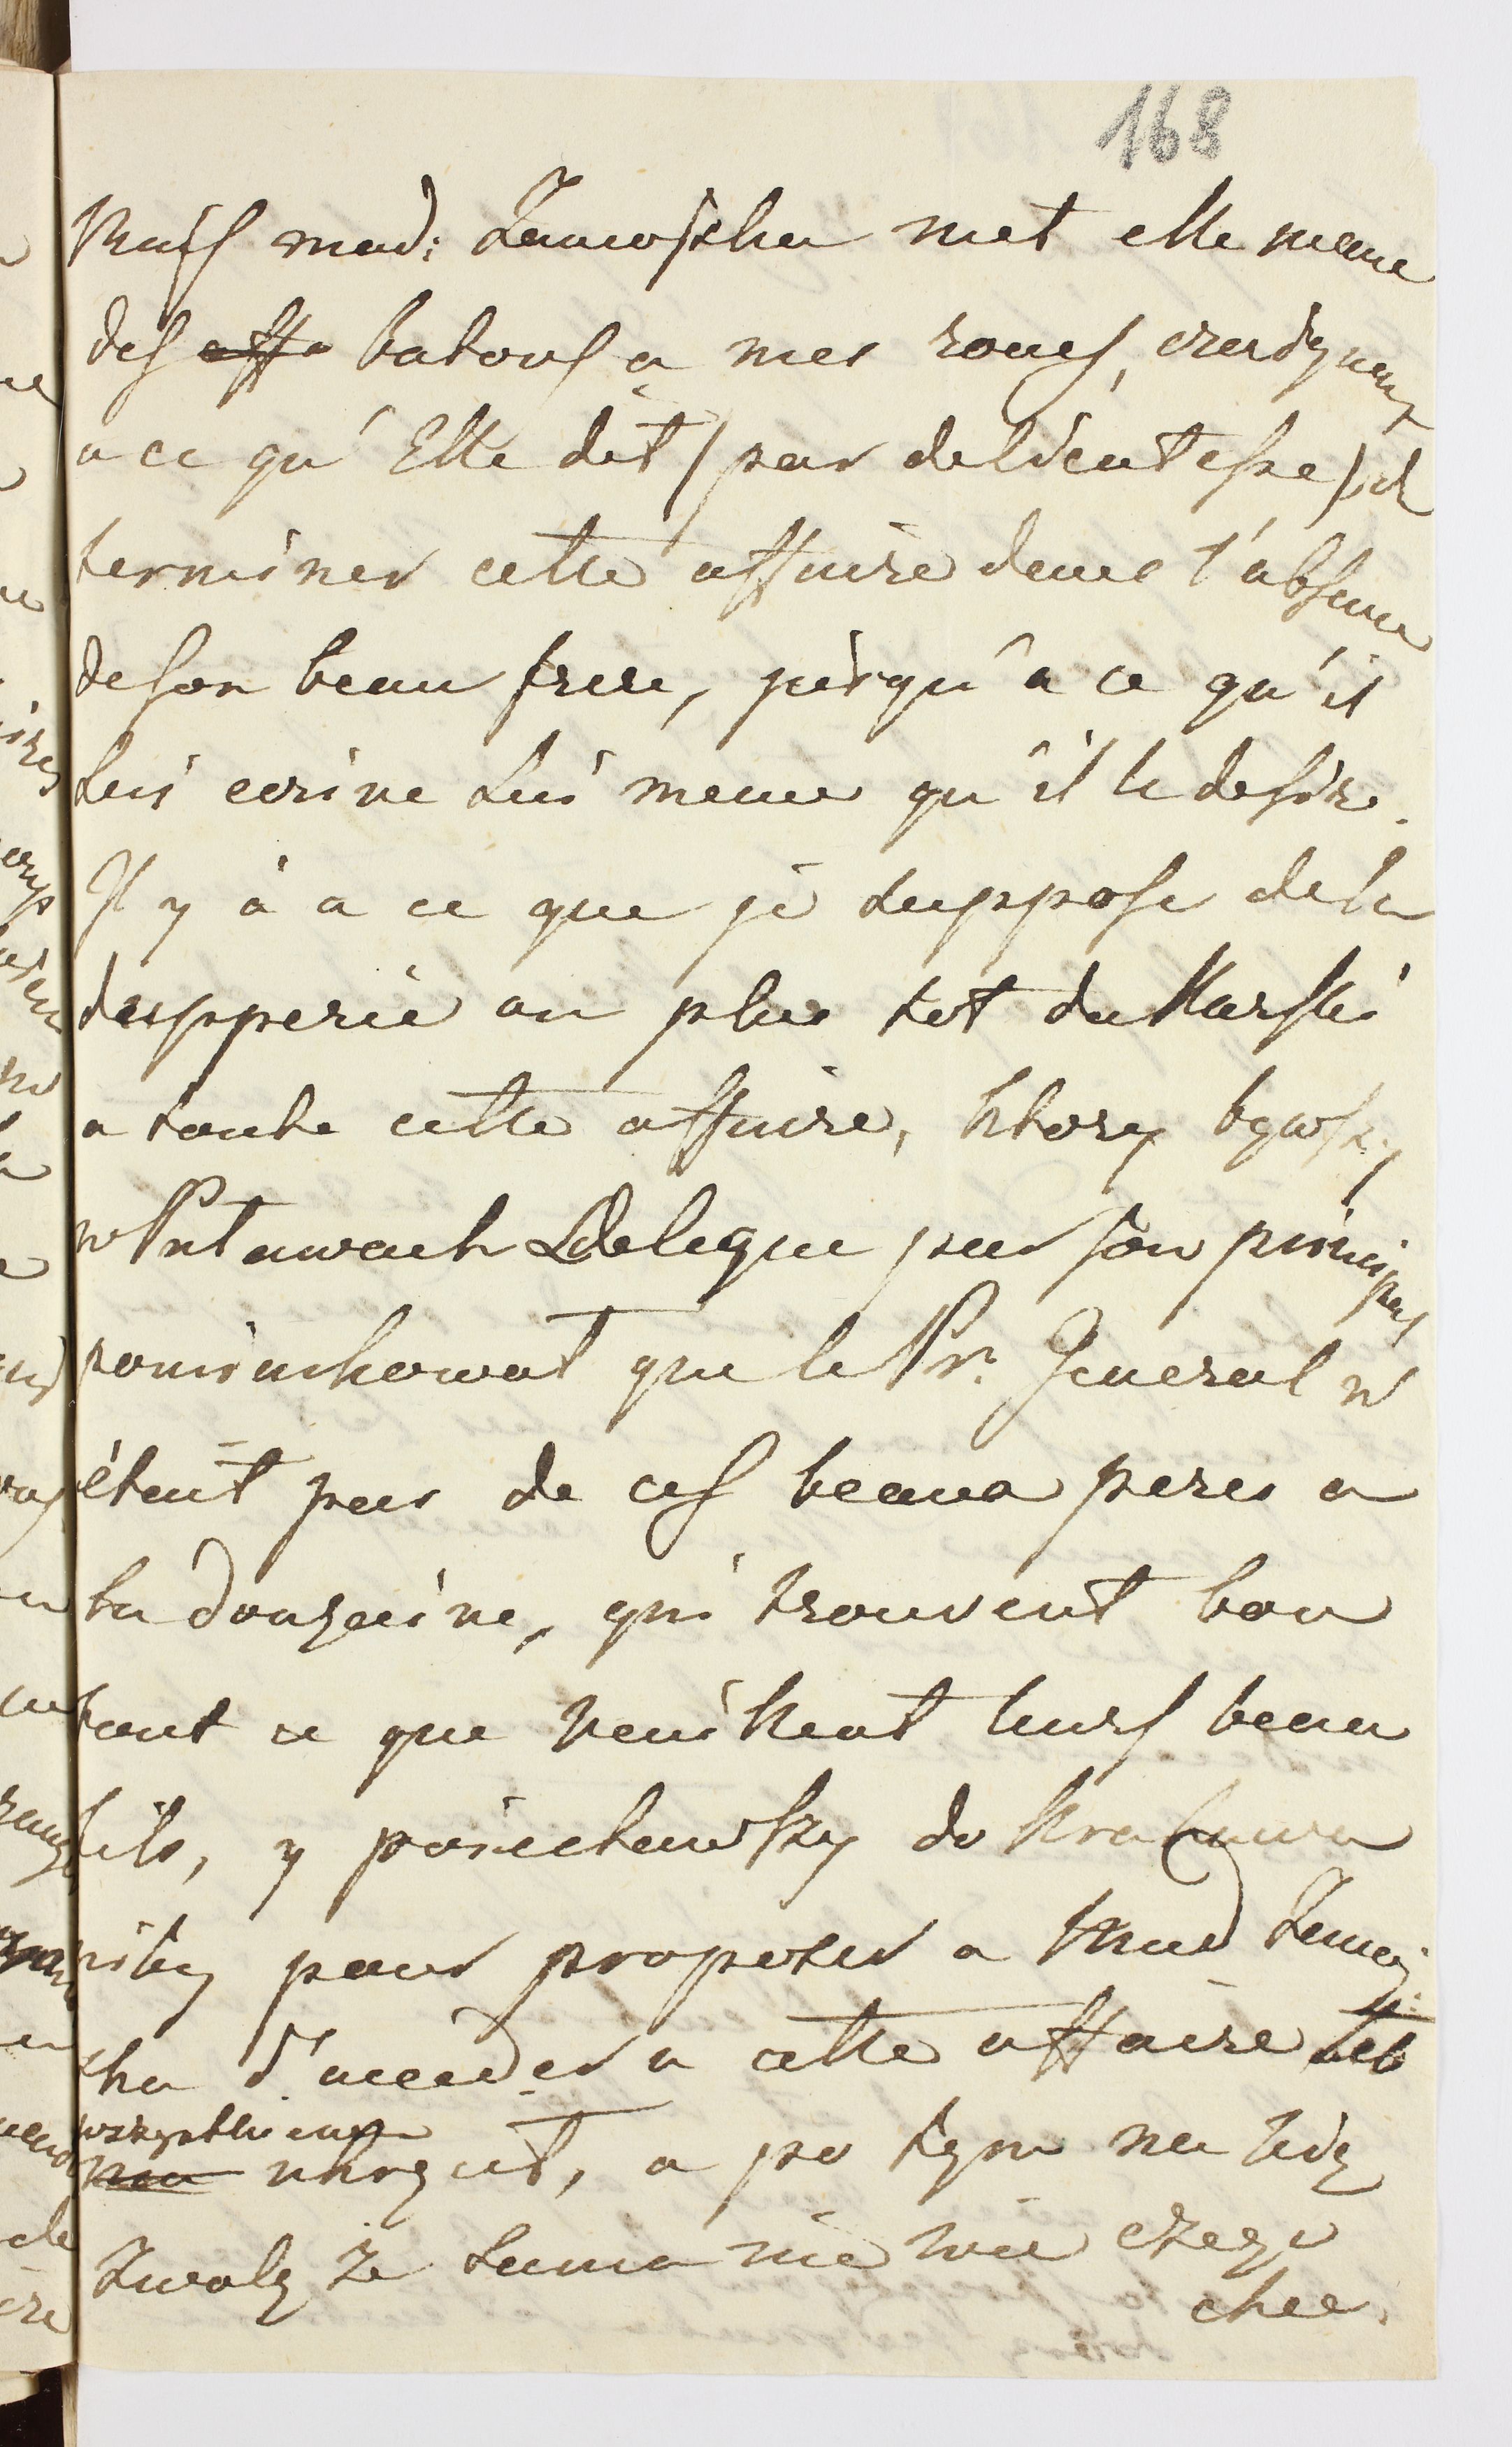 168
Mais mad: Zamoyska met elle meme
des aff batons a mes roues, craignant
a ce qu'Elle dit (par delicatesse) de
terminer cette affaire dans l'absence
de son beau frere, jusqu'a ce qu'il
Lui ecrive Lui meme qu'il le desire.
Il y à a ce que je suppose de la
dupperie ou plus tot du Karski
a toute cette affaire, ktory bywszy
w Pulawach Delegue par son principal
pomiarkowat que le Pr. General n'
étant pas de ces beaux peres a
la douzaine, qui trouvent bon
tout ce que veuillent leurs beau
fils, y poiechawszy do Krakowa
niby pour proposer a Mad Zamoy
ska d'acceder a cette affaire Łeb
wszystkiemu
ukręcit, a po tym na Xdzę
zwalę że sama nie wie czego
chce.